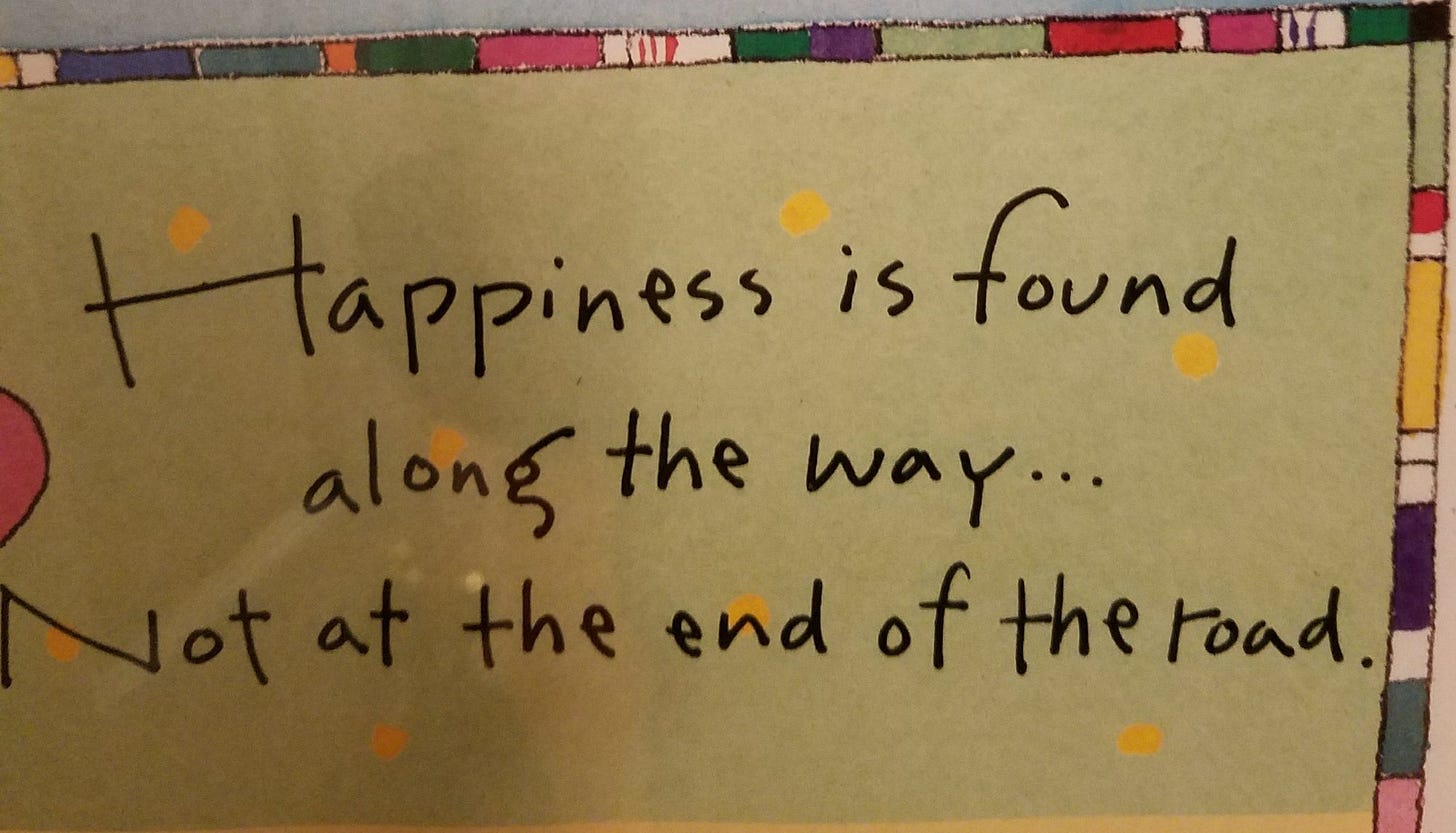 Happiness is found
along the way...
Not at the end of the road.